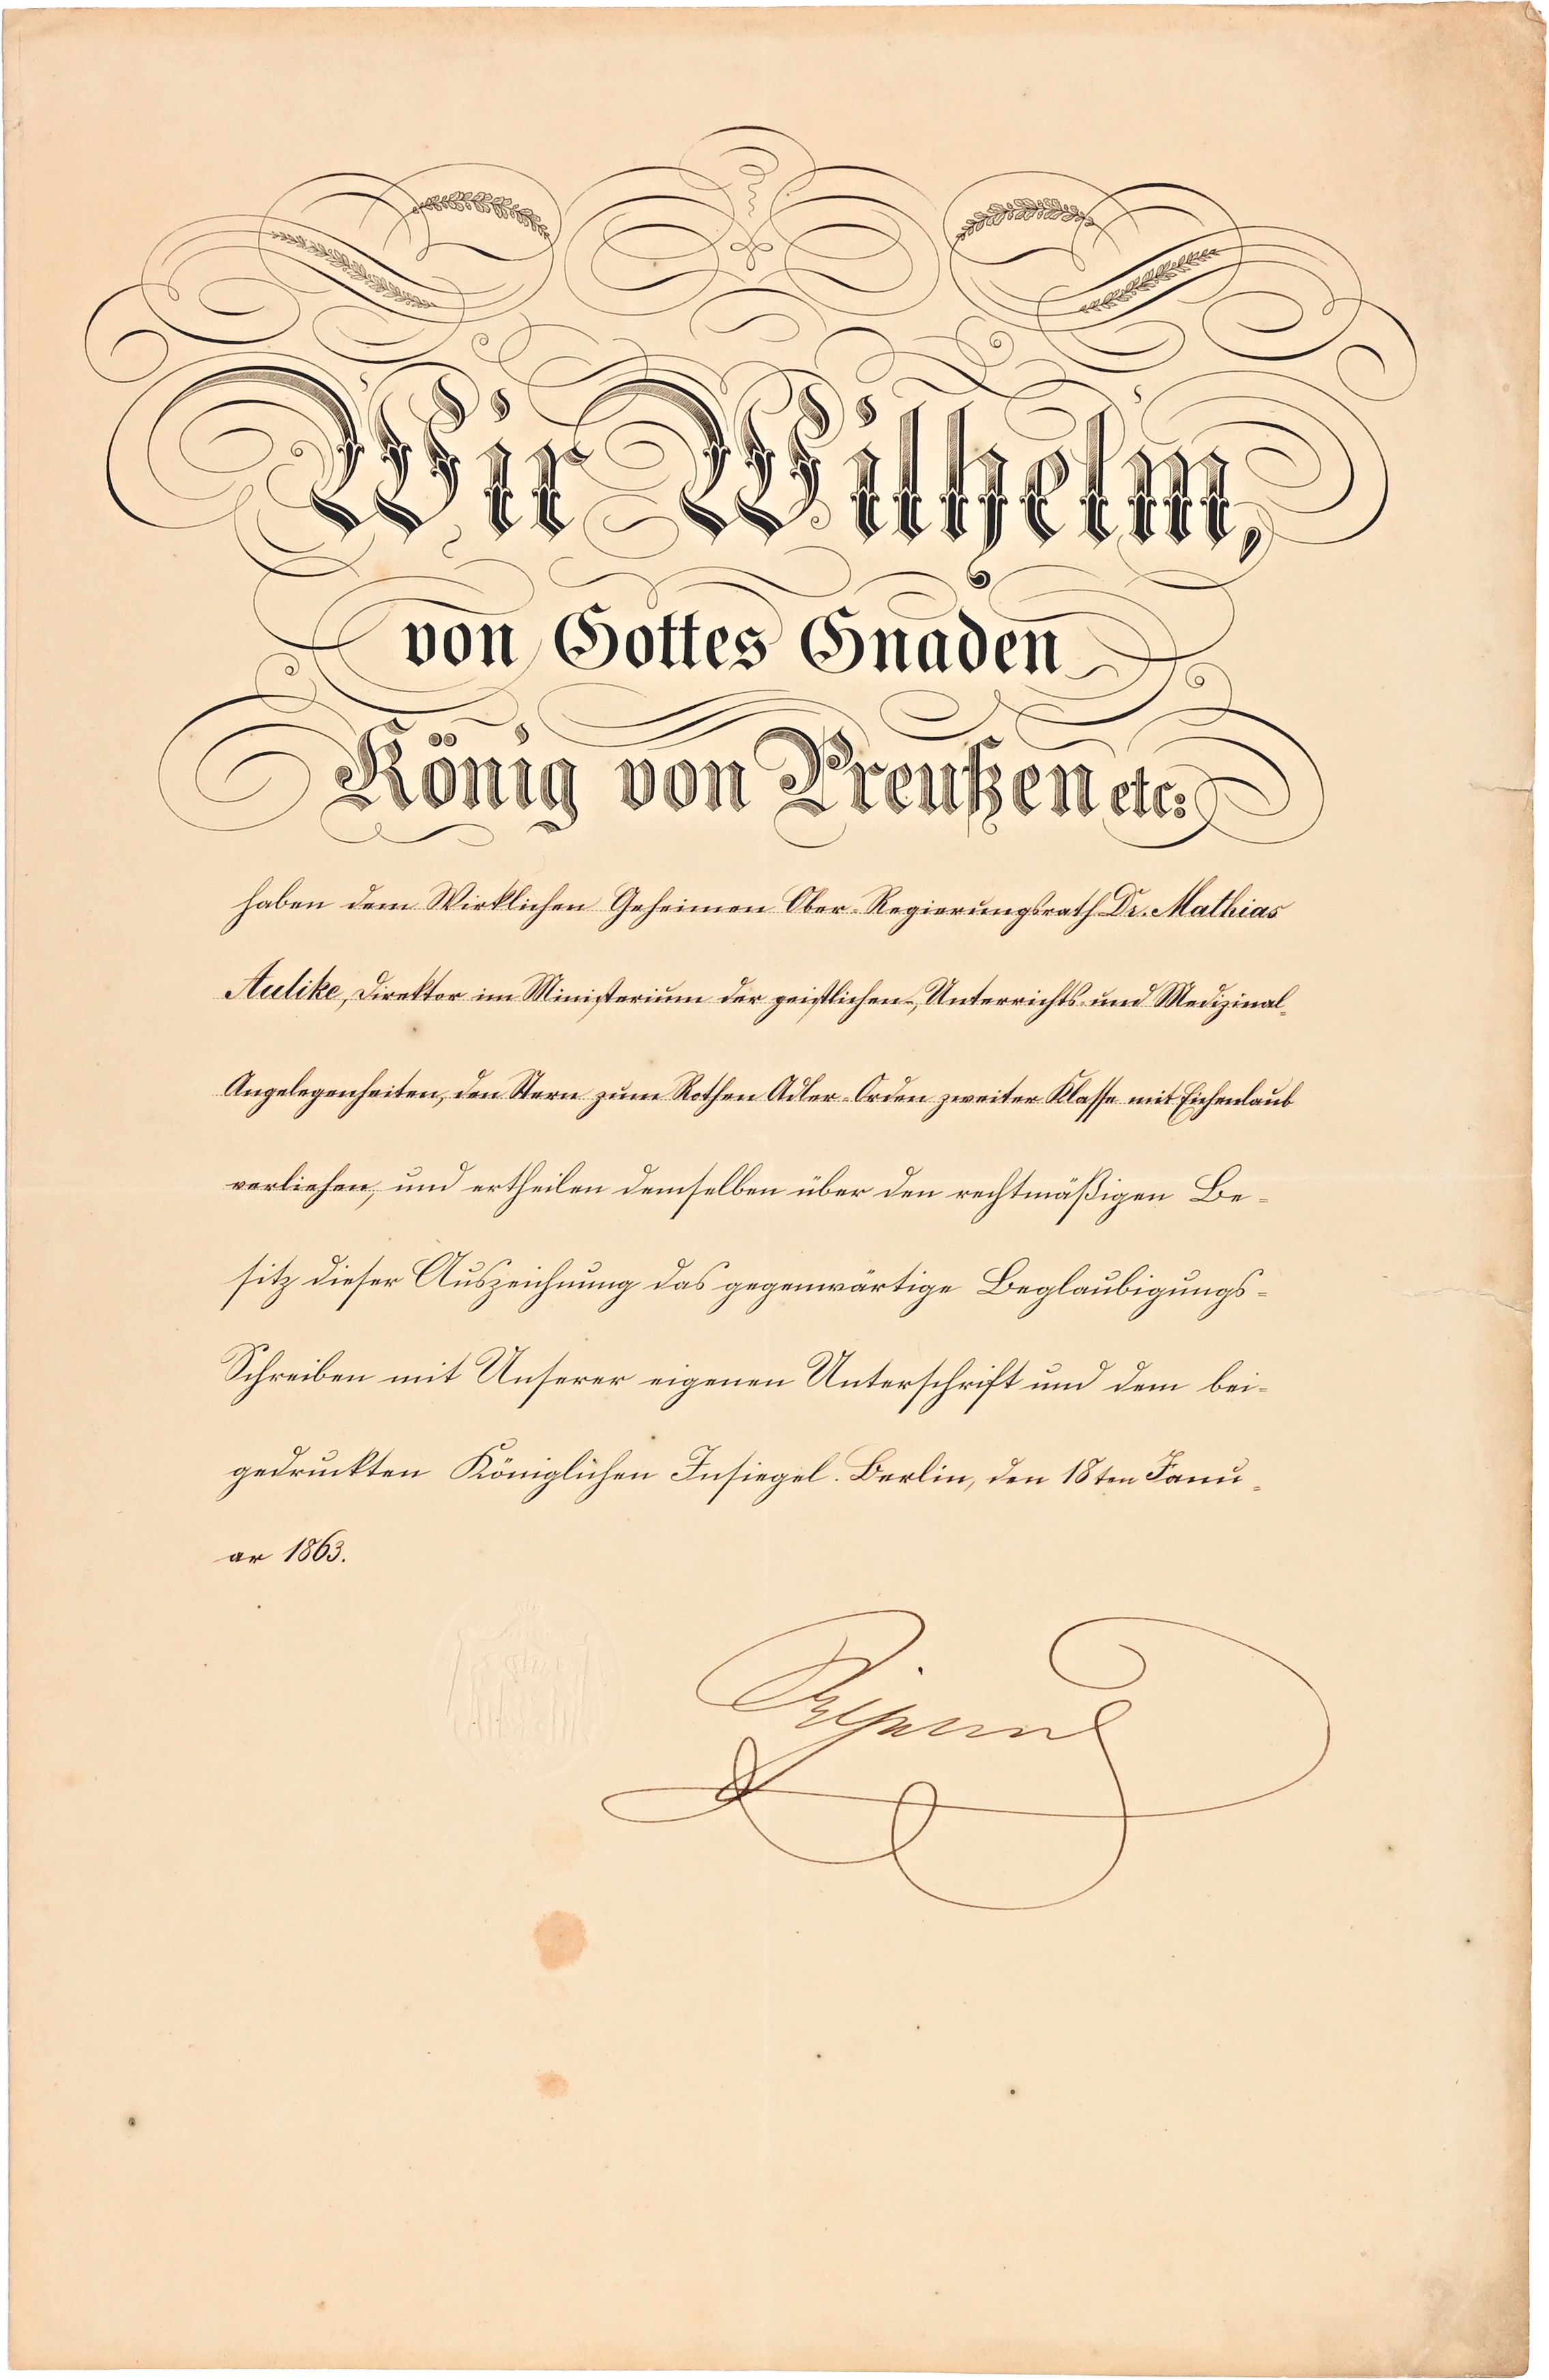 Wir Wilhelm,
von Gottes Gnaden
König von Preußen etc:
haben dem Wirklichen Geheimen Ober-Regierungsrath Dr. Mathias
Aulike, Direktor im Ministerium der geistlichen-, Unterrichts- und Medizinal-
Angelegenheiten, den Stern zum Rothen Adler-Orden zweiter Klasse mit Eichenlaub
verliehen, und ertheilen demselben über den rechtmäßigen Be-
sitz dieser Auszeichnung das gegenwärtige Beglaubigungs-
Schreiben mit Unserer eigenen Unterschrift und dem bei-
gedruckten Königlichen Insiegel. Berlin, den 18ten Janu-
ar 1863.